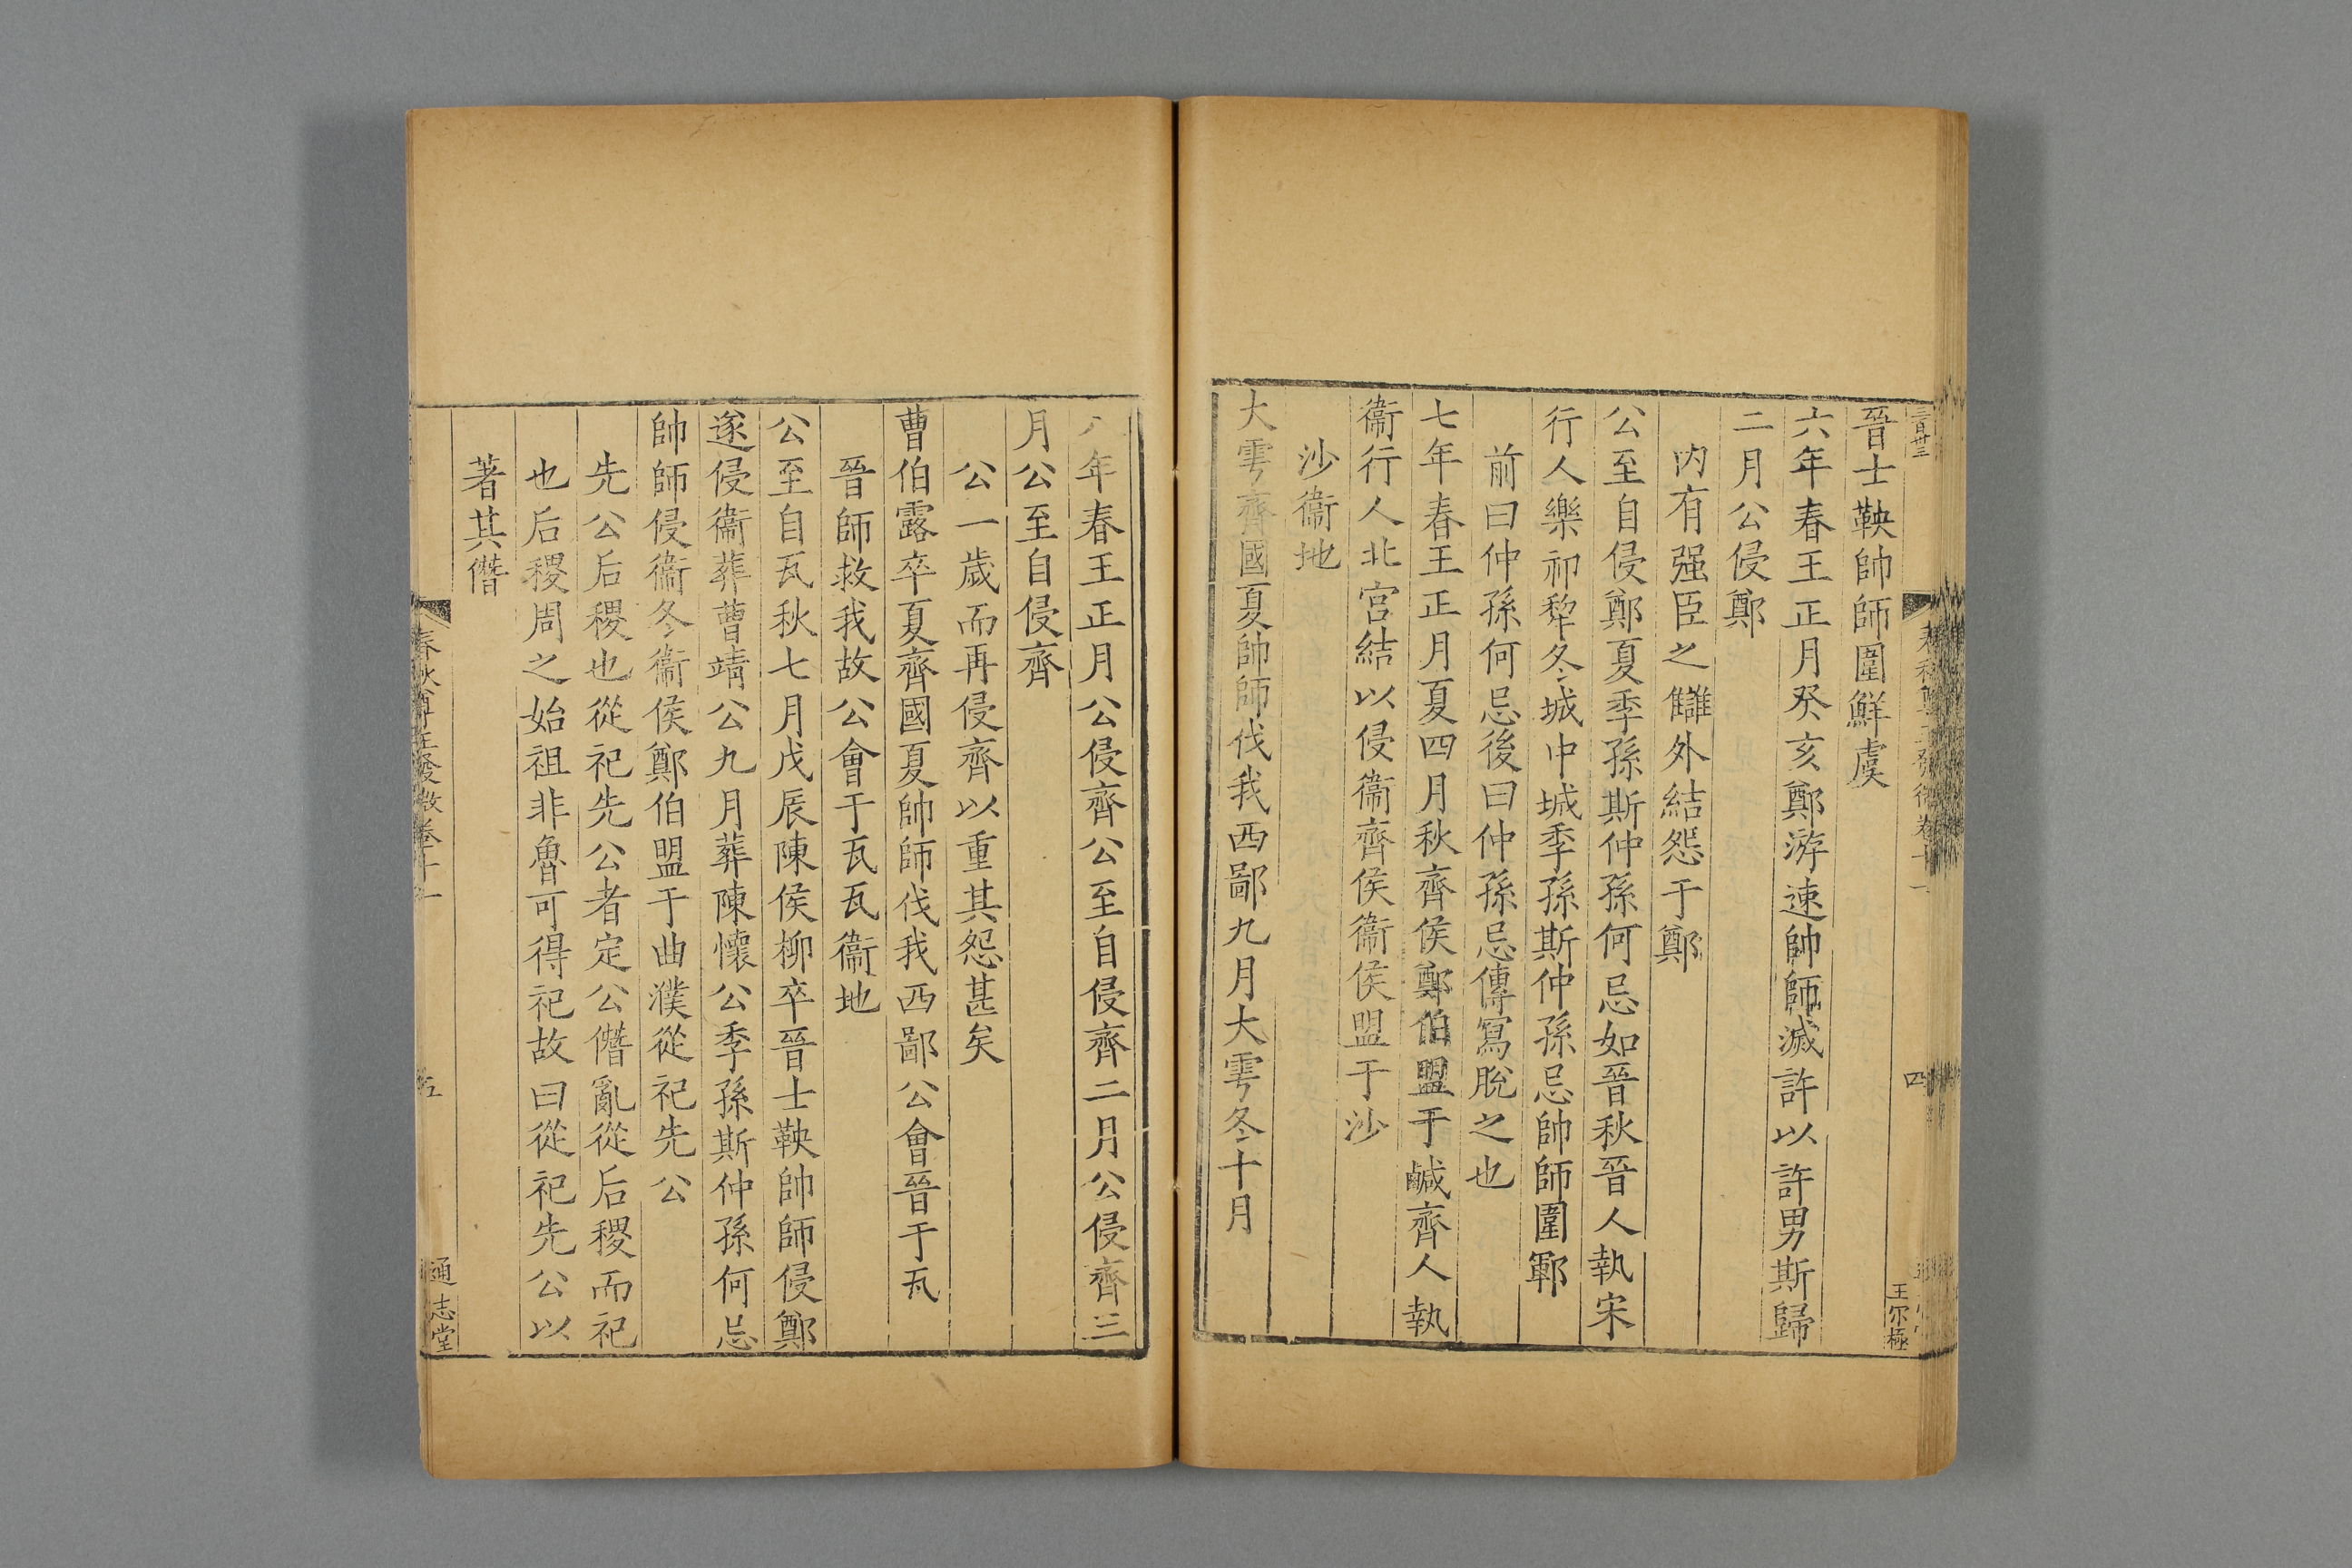 晉士鞅帥師圍鮮虞
六年春王正月癸亥鄭游速帥師滅許以許男斯歸
二月公侵鄭
内有强臣之讎外結怨于鄭
公至自侵鄭夏季孫斯仲孫何忌如晉秋晉人執宋
行人樂祁犂冬城中城季孫斯仲孫忌帥師圍鄆
前曰仲孫何忌後曰仲孫忌傳寫脫之也
七年春王正月夏四月秋齊侯鄭伯盟于鹹齊人執
衞行人北宮結以侵衞齊侯衞侯盟于沙
沙衞地
大雩齊國夏帥師伐我西鄙九月大雩冬十月
王尔極
八年春王正月公侵齊公至自侵齊二月公侵齊三
月公至自侵齊
公一歲而再侵齊以重其怨甚矣
曹伯露卒夏齊國夏帥師伐我西鄙公會晉于瓦
晉師救我故公會于瓦瓦衞地
公至自瓦秋七月戊辰陳侯柳卒晉士鞅帥師侵鄭
遂侵衞葬曹靖公九月葬陳懷公季孫斯仲孫何忌
帥師侵衞冬衞侯鄭伯盟于曲濮從祀先公
先公后稷也從祀先公者定公僭亂從后稷而祀
也后稷周之始祖非魯可得祀故曰從祀先公以
著其僭
春秋尊王發微卷十一
五
通志堂